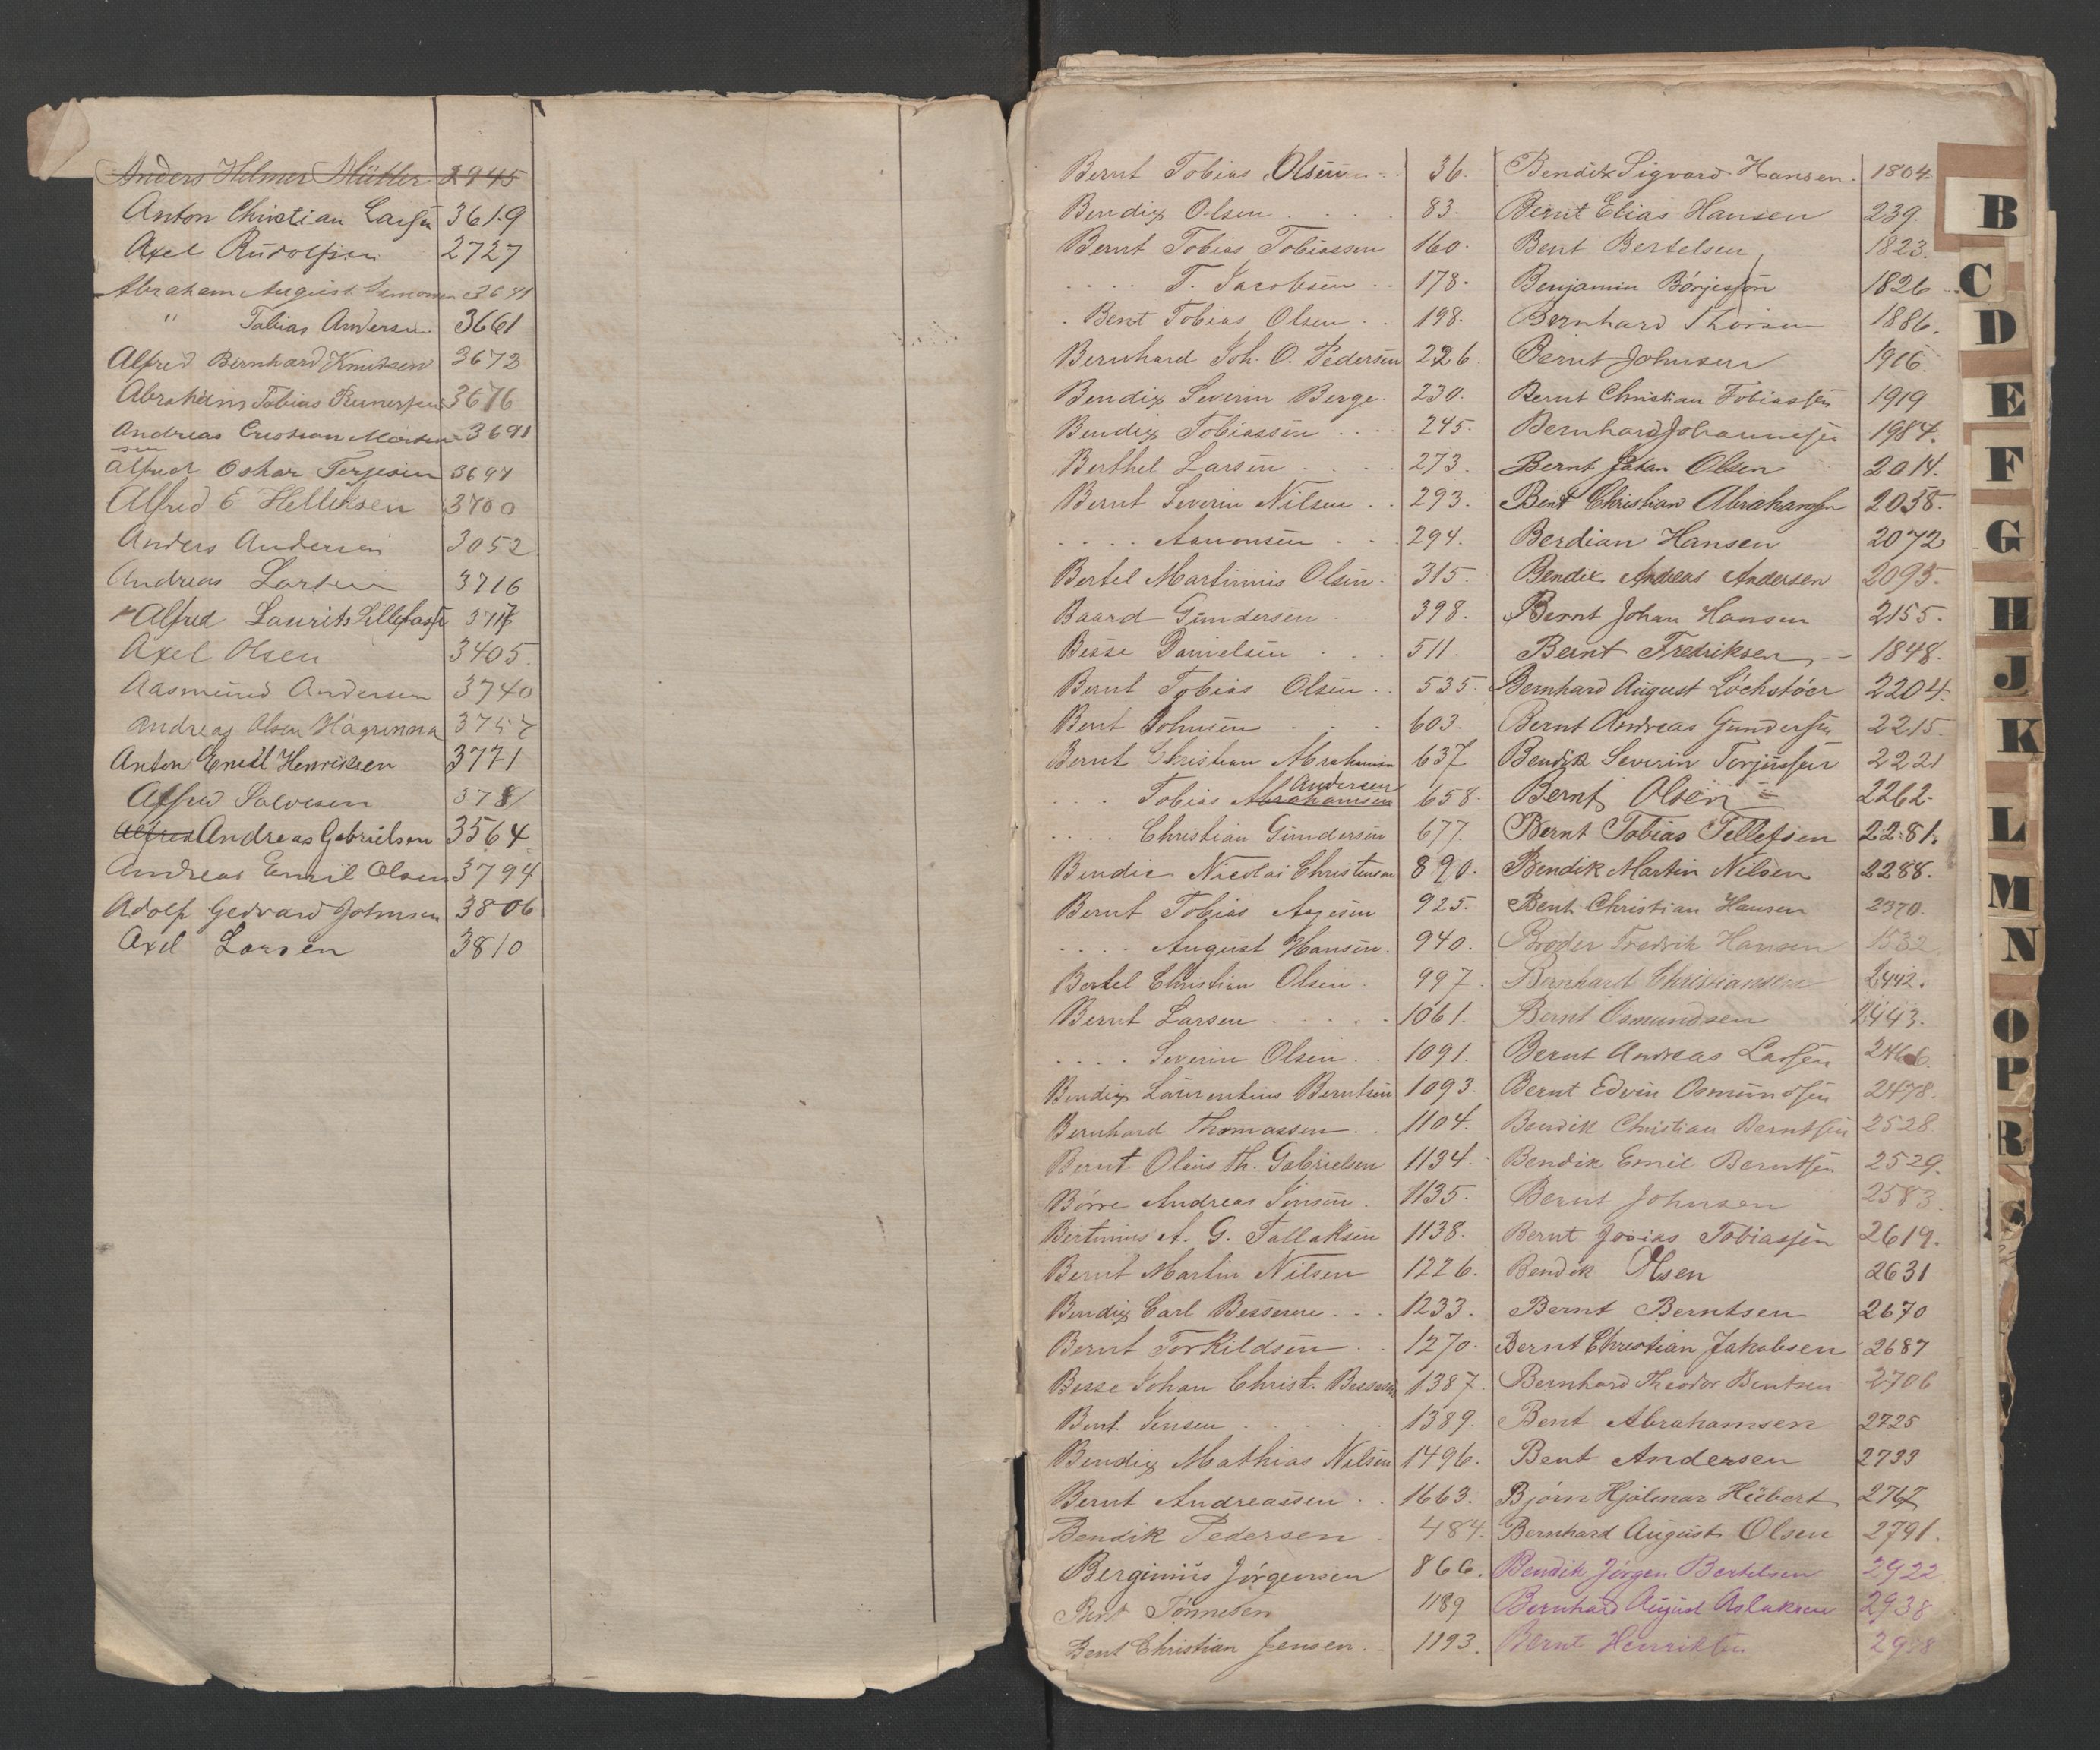 Anders Helmer Müller 2945
Anton Christian Larsen 3619
Axel Rudolfsen 2727
Abraham August 3641
" Tobias Andersen 3661
Alfred Bernhard Knutsen 3672
Abraham Tobias 3676
Andreas Cristian 3691
Alfred Oskar Terjesen 3697
Alfred E Helliksen 3700
Anders Andersen 3052
Andreas Larsen 3716
Alfred Laurits 3717
Axel Olsen 3405.
Aasmund Andersen 3740
Andreas Olsen 3757
Anton Emil Henriksen 3771
Alfred Salvesen 3781
Alfred Andreas Gabrielsen 3564
Andreas Emil Olsen 3794
Adolf Gedvard Johnsen 3806
Axel Larsen 3810
Bernt Tobias Olsen 36.
Bendix Olsen . . . . 83.
Bernt Tobias Tobiassen 160.
. . . . T. Jacobsen . . 178.
. Bent Tobias Olsen . . 198.
Bernhard Joh. O. Pedersen 226.
Bendix Severin Berge. 230.
Bendix Tobiassen . . . . 245.
Berthel Larsen . . . . 273.
Bernt Severin Nilsen . . 293.
. . . . Aanonsen . . . 294.
Bertel Martinius Olsen. 315.
Baard Gundersen . 398.
Besse Danielsen . . . 511.
Bernt Tobias Olsen . . 535.
Bent Johnsen . . . 603.
Bernt Christian Abrahamsen 637
. . . Tobias Abrahamsen Andersen 658.
. . . . Christian Gundersen 677.
Bendic Nicolai Christensen 890.
Bernt Tobias Aagesen 925.
. . . . August Hansen. 940.
Bertel Christian Olsen. 997
Bernt Larsen . . . . . 1061.
. . . . Severin Olsen. . 1091.
Bendix Laurentius Berntsen 1093.
Bernhard Thomassen. . 1104.
Bernt Olaus Th. Gabrielsen 1134.
Børre Andreas Jensen. 1135.
Bertinius A. G. Tallaksen 1138.
Bernt Martin Nilsen 1226.
Bendix Carl Bessesen . . . 1233.
Bernt Torkildsen . . 1270.
Besse Johan Christ. Bessesen 1387.
Bent Jensen . . . . . 1389.
Bendix Mathias Nilsen 1496.
Bernt Andreassen . . 1663.
Bendik Pedersen . 484.
Berginius Jørgensen 866.
Bent Tønnesen 1189
Bent Christian Jensen. . 1193.
Bendix Sigvard Hansen. 1804.
Bernt Elias Hansen 239.
Bent Bertelsen 1823.
Benjamin Børjesson 1826
Bernhard Thorsen 1886.
Bernt Johnsen 1906.
Bernt Christian Tobiassen 1919
Bernhard Johannesen 1984.
Bernt Johan Olsen 2014.
Bent Christian Abrahamsen 2058.
Berdian Hansen 2072
Bendix Andreas Andersen 2095.
Bernt Johan Hansen 2155.
Bernt Fredriksen 1848.
Bernhard August Löchstöer 2204.
Bernt Andreas Gundersen 2215.
Bendik Severin Torjussen 2221
Bernt Olsen 2262.
Bernt Tobias Tellefsen 2281.
Bendik Martin Nilsen 2288.
Bent Christian Hansen 2370.
Broder Fredrik Hansen 1532
Bernhard Christiansen 2442.
Bernt Osmundsen 2443.
Bernt Andreas Larsen 2466.
Bernt Edvin Osmundsen 2478.
Bendik Christian Berntsen 2528
Bendik Emil Berntsen 2529.
Bernt Johnsen 2583.
Bernt Josias Tobiassen 2619.
Bendik Olsen 2631
Bernt Berntsen 2670
Bernt Christian Jakobsen 2687
Bernhard Theodor Bentsen 2706
Bent Abrahamsen 2725
Bent Andersen 2733
Bjørn Hjalmar Hübert 2767
Bernhard August Olsen 2791.
Bendik Jörgen Bertelsen 2922
Bernhard August Aslaksen 2938
Bernt Henriksen 2988
B
C
D
E
F
G
H
J
K
L
M
N
O
P
R
S